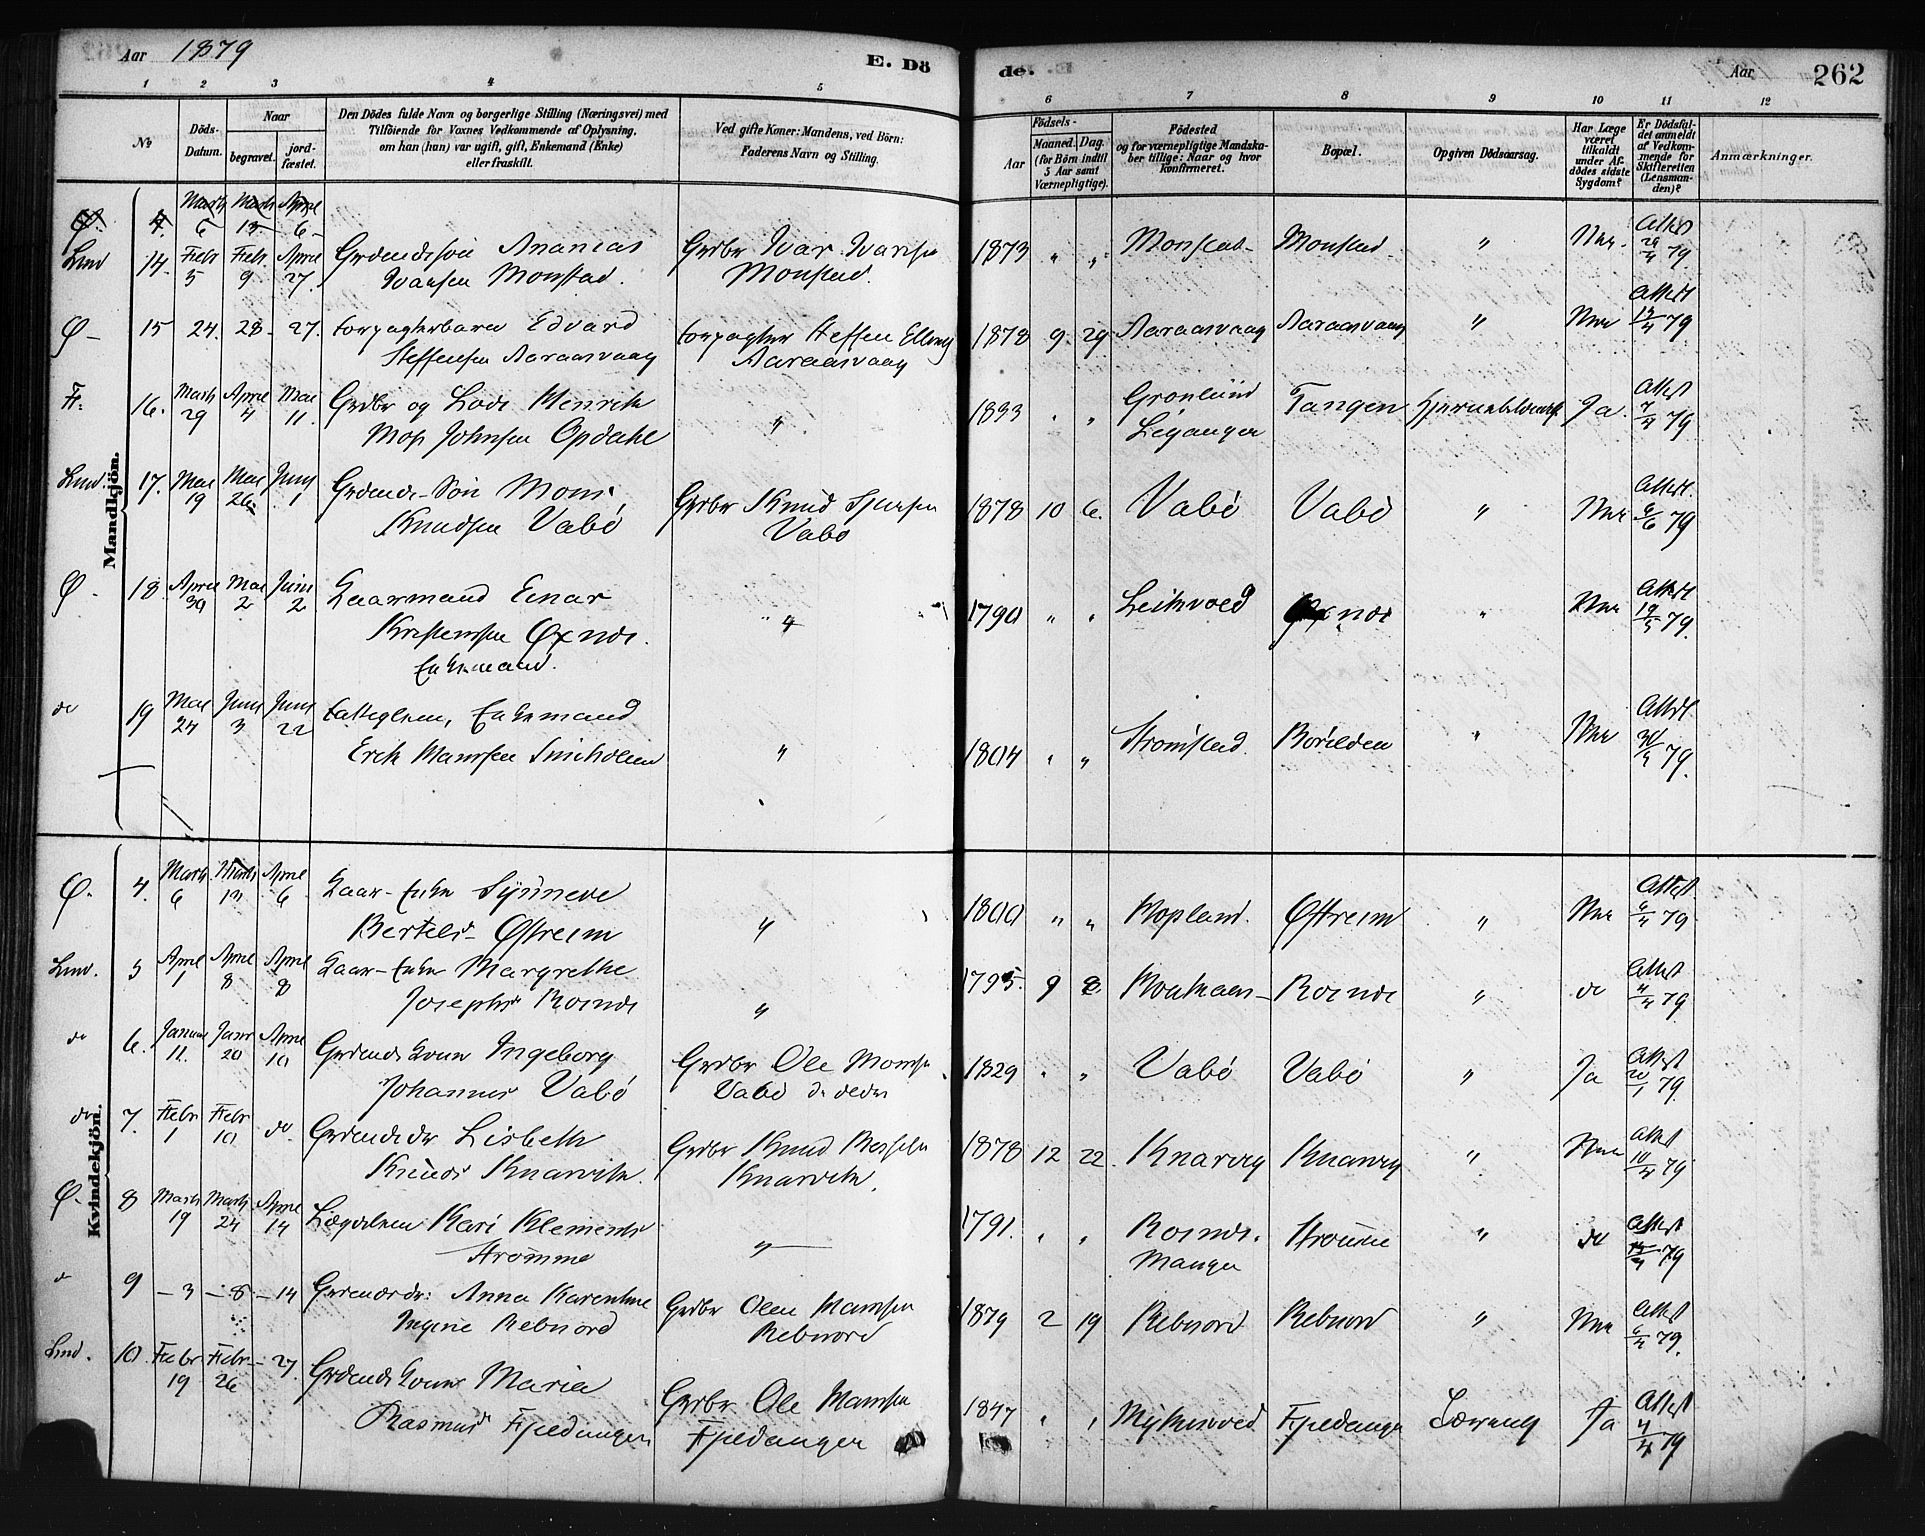 Aar 1879
E. Dö
de.
Aar
262
1 2 3 4 5 6 7 8 9 10 11 12
No
Döds-
Datum.
Naar
begravet.
jord-
fæstet.
Den Dödes fulde Navn og borgerlige Stilling (Næringsvei) med
Tilföiende for Voxnes Vedkommende af Oplysning,
om han (hun) var ugift, gift, Enkemand (Enke)
eller fraskilt.
Ved gifte Koner: Mandens, ved Börn:
Faderens Navn og Stilling.
Födsels-
Aar
Maaned. Dag.
(for Börn indtil
5 Aar samt
Værnepligtige).
Födested
og for værnepligtige Mandska-
ber tillige: Naar og hvor
konfirmeret.
Bopæl.
Opgiven Dödsaarsag.
Har Læge
været
tilkaldt
under Af-
dödes sidste
Sygdom?
Er Dödsfal-
det anmeldt
af Vedkom-
mende for
Skifteretten
(Lensman-
den)?
Anmærkninger.
Mandkjön.
Ø. 4. Marts 6 Marts 13 April 6
Lind 14. Febr 5 Febr 9 April 27. Grdmds sön Ananias Grdbr Ivar Ivarsen 1873 " " Monstad Monstad " Nei. Attest 79.
Ivarsen Monstad. Monstad.
Ø- 15 24. 28- 27. forpagterbarn Edvard forpagter Steffen Elling 1878 9. 29 Aaraasvaag Aaraasvaag " Nei Attest 79.
Steffensen Aaraasvaag Aaraasvaag
Fr. 16. Marts 29 April 4 Mai 11. Grdbr og Lods Henrik " " " Tangen Ja. Attest 7/4 79
Johnsen Opdahl
Lind. 17. Mai 19 Mai 26 Juni 1 Grdmds-Sön Mons Grdbr Knud 1878 10 6. Vabö Vabö " Nei Attest 6/6 79
Knudsen Vabö Vabö
Ø. 18. April 30 Mai 2 Juni 2 Kaarmand Einar " 1790 " " " Nei Attest 79.
Kristensen Øxnes.
Enkemand.
do 19 Mai 24 Juni 3 Juni 22 fattiglem, Enkemand 1804 " " Strömstad " Nei Attest 79.
Erik "
Kvindekjön.
Ø. 4. Marts 6 Marts 13 April 6 Kaar-Enke Synneve " 1800 " " Hopland. Østreim " Nei Attest 6/4 79
Bertels- Østreim
Lind. 5 April 1 April 8 April 8 Kaar-Enke Margrethe " 1795. 9 8. Rosnes " do Attest 79
Josephs Rosnes
do 6. Januar 11. Janr 20 April 10 Grdmds Kone Ingeborg Grdbr Ole 1829 " " Vabö Vabö " Ja Attest 20/1 79
Johannes Vabö Vabö
do 7. Febr 1 Febr 10 do. Grdmds dr Lisbeth Grdbr Knud 1878 12 22. Knarvig Knarvig " Nei Attest 79
Knuds Knarvik. Knarvik.
Ø- 8 Marts 19 Marts 24 April 14 Lægdslem Kari Klements " 1791. " " Rosnes. Strömme " do Attest 79
Strömme Manger
" 9 -3 -8 -14 Grdmds dr: Anna Karentine Grdbr Olai Hansen 1879 2 19 Rebnord Rebnord " Nei Attest 79.
Rebnord Rebnord
Lind. 10. Febr 19 Febr 26 - 27. Grdmds Kone Maria Grdbr Ole Hansen 1847 " " Myksvoll Fjeldanger Ja Attest 79
Rasmus Fjeldanger Fjeldanger